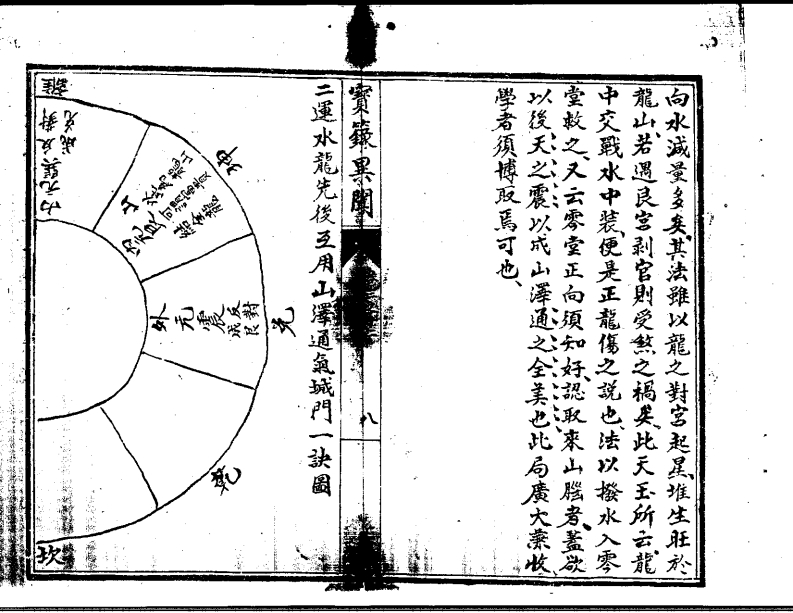 向水減量多矣、其法雖以龍之對宮起星、堆生旺於
龍山若遇艮宮剥官則受煞之禍矣、此天玉所云龍
中交戰水中装、便是正龍傷之說也、法以撥水入零
堂救之、又云零堂正向須知好、認取來山腦者、蓋欲
以後天之震以成山澤通之全美也此局廣大兼收、
學者須博取焉可也、
寳籙異聞
八
二運水龍先後互用山澤通氣城門一訣圖
坤
兌
乾
坎
離
外元震
反對
成艮
内元巽反對
成兌